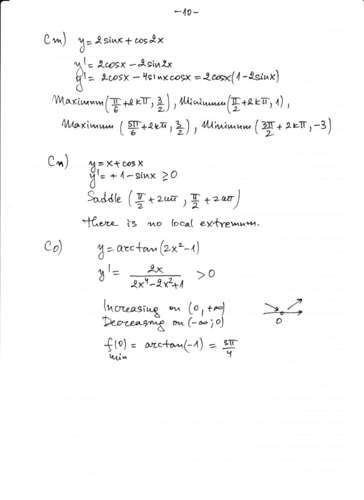 -10-
Cm) y = 2sinx + cos2x
y' = 2cosx - 2sin2x
y' = 2cosx - 4sinxcosx = 2cosx(1-2sinx)
Maximum (π/6 + 2kπ, 3/2), Minimum (π/2 + 2kπ, 1),
Maximum (5π/6 + 2kπ, 3/2), Minimum (3π/2 + 2kπ, -3)
Cn) y = x + cosx
y' = +1 - sinx ≥ 0
Saddle (π/2 + 2kπ, π/2 + 2kπ)
There is no local extremum.
Co) y = arctan(2x²-1)
y' = 2x / (2x⁴-2x²+1) > 0
Increasing on (0, +∞)
Decreasing on (-∞; 0)
0
f(0) = arctan(-1) = 3π/4
min